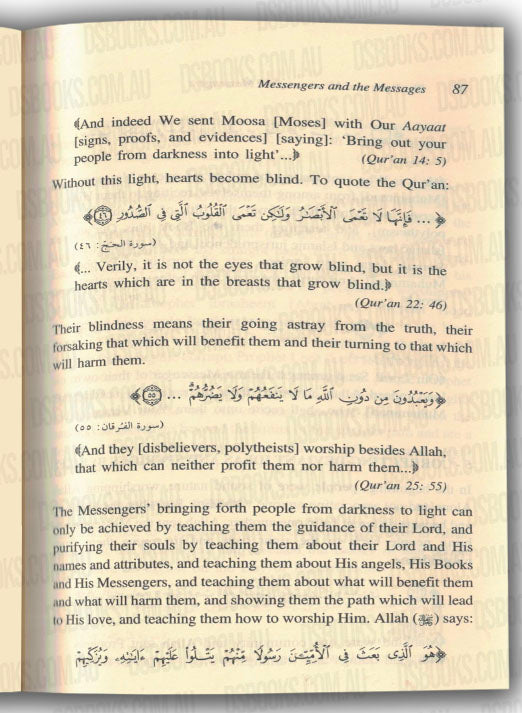 Messengers and the Messages 87
﴾And indeed We sent Moosa [Moses] with Our Aayaat
[signs, proofs, and evidences] [saying]: ‘Bring out your
people from darkness into light’...﴿ (Qur’an 14: 5)
Without this light, hearts become blind. To quote the Qur’an:
﴿... فَإِنَّهَا لَا تَعْمَى ٱلْأَبْصَٰرُ وَلَٰكِن تَعْمَى ٱلْقُلُوبُ ٱلَّتِى فِى ٱلصُّدُورِ ٤٦﴾
(سورة الحج: ٤٦)
﴾... Verily, it is not the eyes that grow blind, but it is the
hearts which are in the breasts that grow blind.﴿
(Qur’an 22: 46)
Their blindness means their going astray from the truth, their
forsaking that which will benefit them and their turning to that which
will harm them.
﴿وَيَعْبُدُونَ مِن دُونِ ٱللَّهِ مَا لَا يَنفَعُهُمْ وَلَا يَضُرُّهُمْ ... ٥٥﴾
(سورة الفرقان: ٥٥)
﴾And they [disbelievers, polytheists] worship besides Allah,
that which can neither profit them nor harm them...﴿
(Qur’an 25: 55)
The Messengers’ bringing forth people from darkness to light can
only be achieved by teaching them the guidance of their Lord, and
purifying their souls by teaching them about their Lord and His
names and attributes, and teaching them about His angels, His Books
and His Messengers, and teaching them about what will benefit them
and what will harm them, and showing them the path which will lead
to His love, and teaching them how to worship Him. Allah () says:
﴿هُوَ ٱلَّذِى بَعَثَ فِى ٱلْأُمِّيِّـۧنَ رَسُولًا مِّنْهُمْ يَتْلُوا۟ عَلَيْهِمْ ءَايَٰتِهِۦ وَيُزَكِّيهِمْ
DSBOOKS.COM.AU